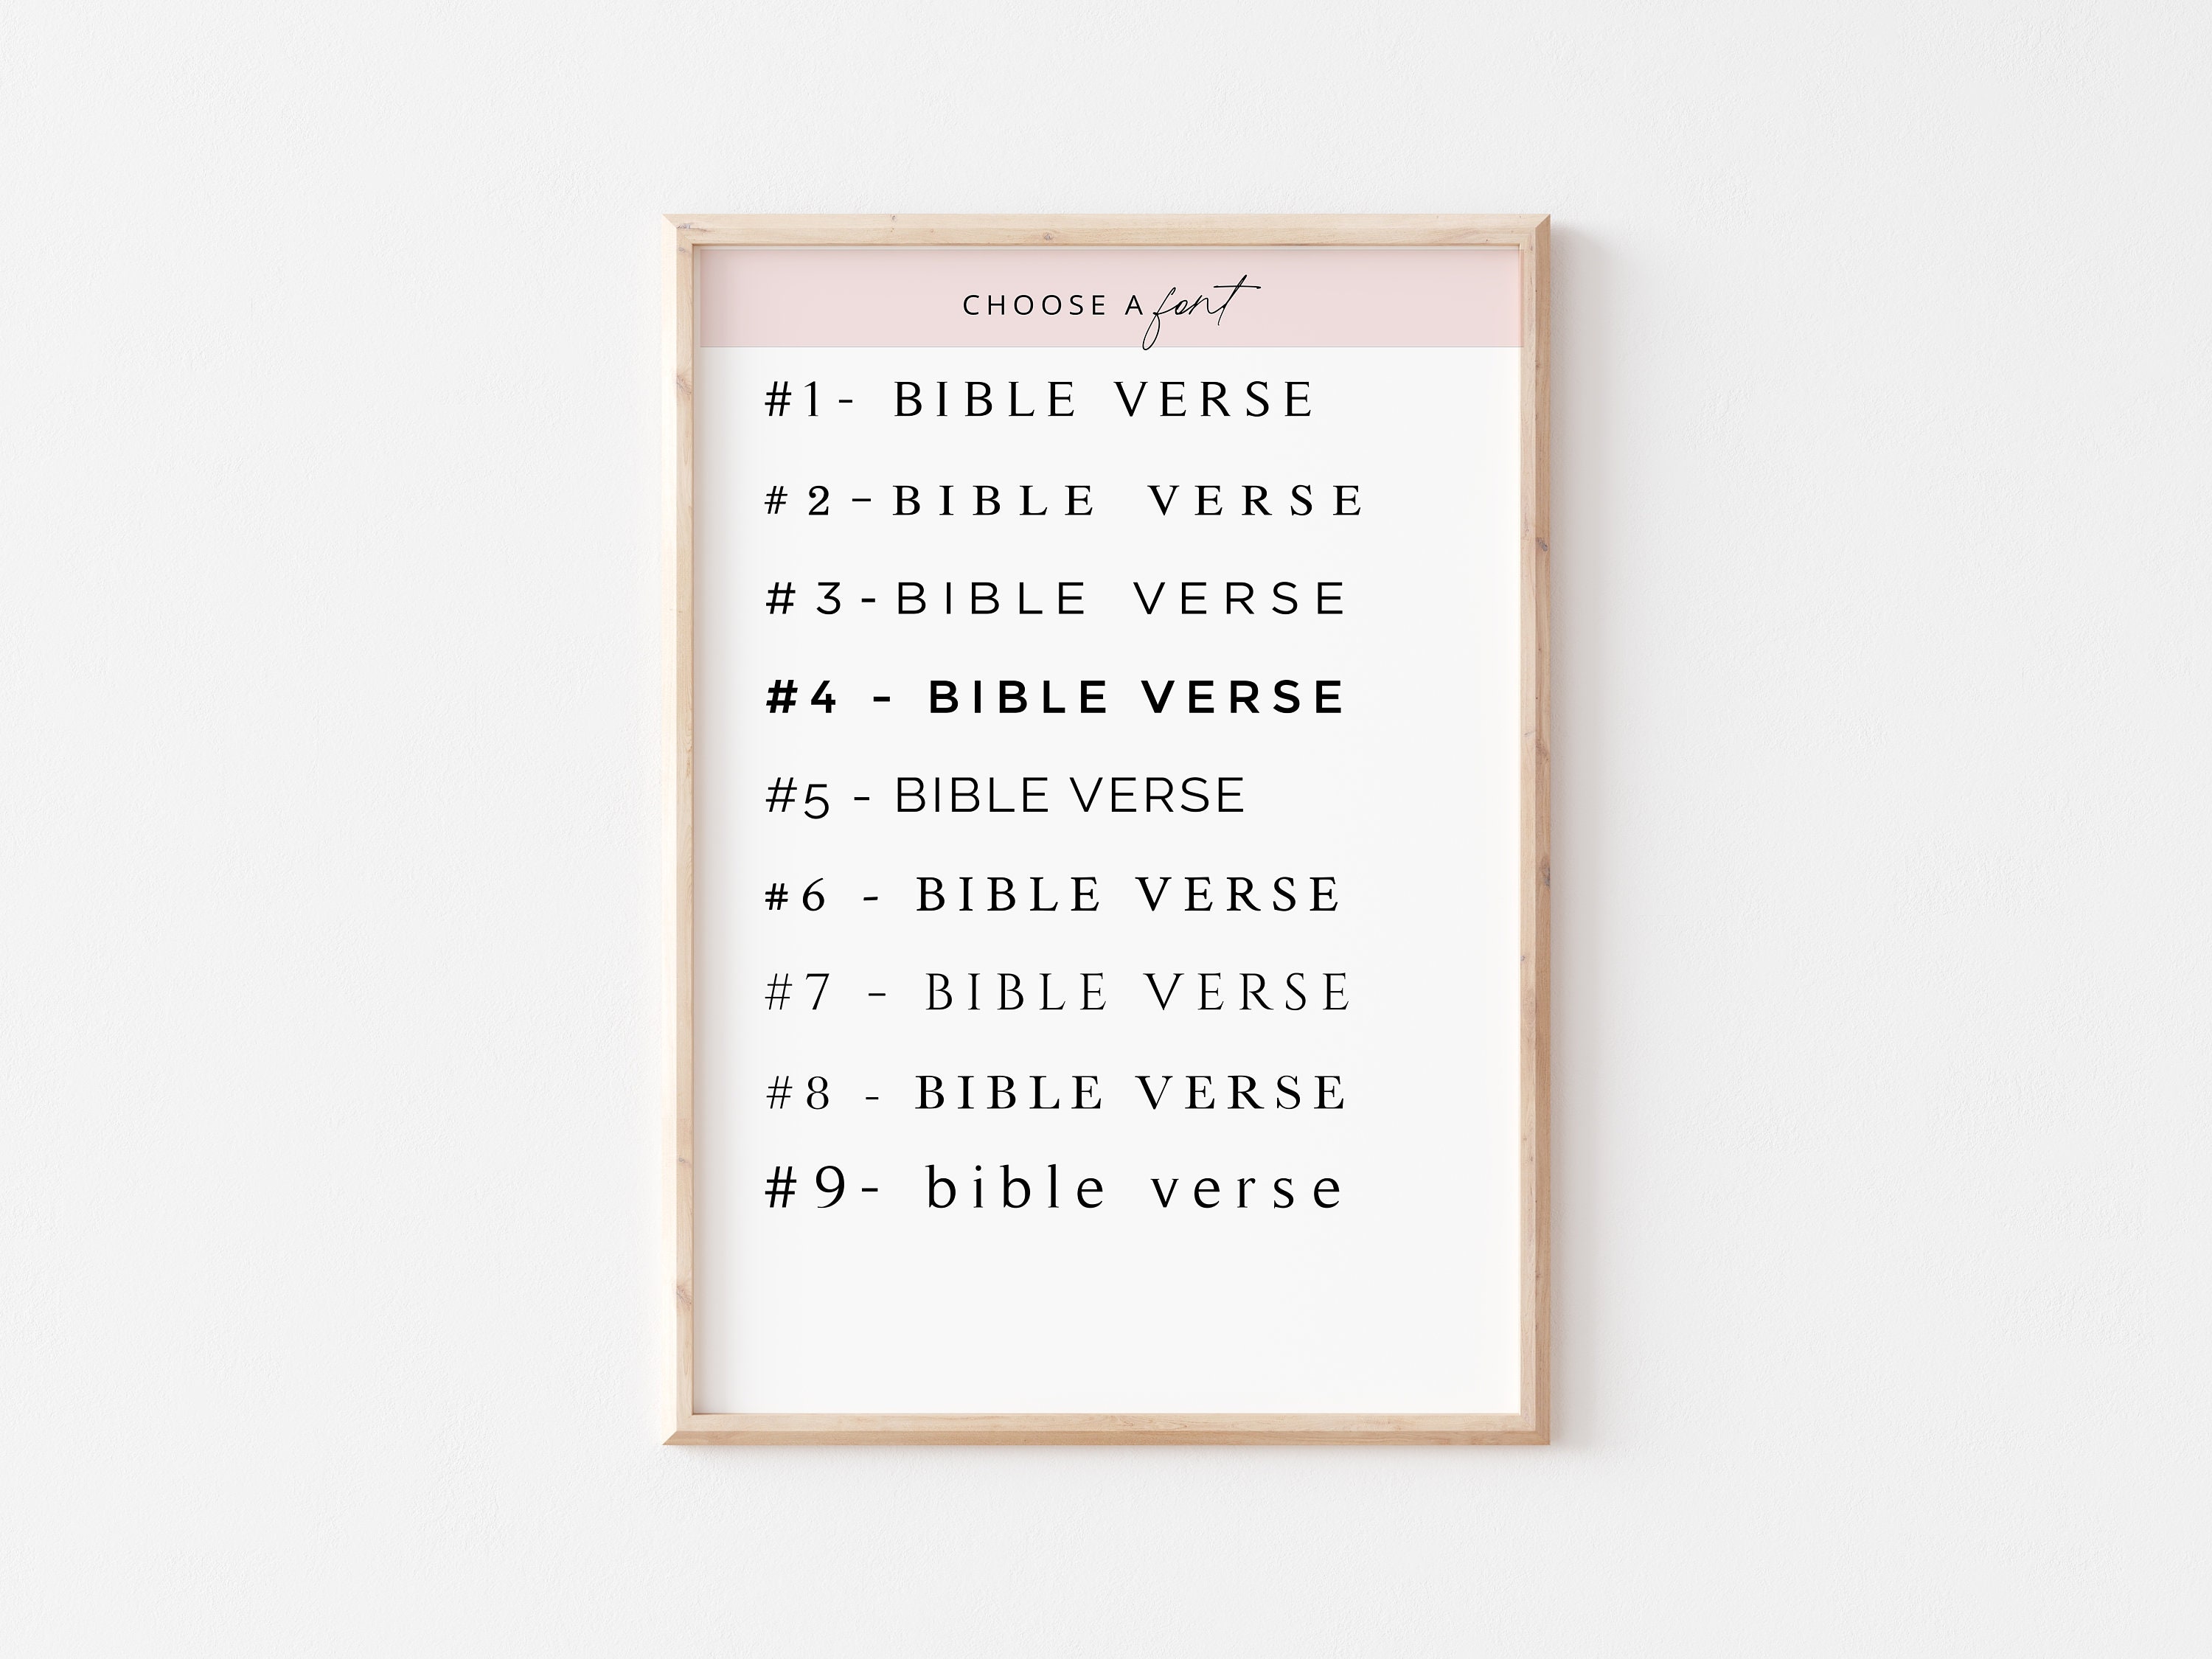 CHOOSE A font
#1- BIBLE VERSE
# 2 -BIBLE VERSE
# 3 -BIBLE VERSE
#4 - BIBLE VERSE
#5 - BIBLE VERSE
#6 - BIBLE VERSE
#7 - BIBLE VERSE
#8 - BIBLE VERSE
#9- bible verse